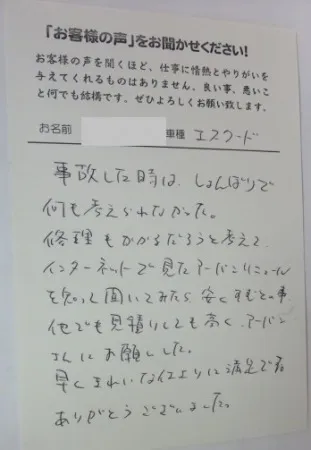 「お客様の声」をお聞かせください!
お客様の声を聞くほど、仕事に情熱とやりがいを
与えてくれるものはありません。良い事、悪いこ
と何でも結構です。ぜひよろしくお願い致します。
お名前 車種 エスクード
事故した時は、しょんぼりで
何も考えられなかった。
修理もかかるだろうと考えて、
インターネットで見たアーバンリニューアル
を知って聞いてみたら、安くすむとの事、
他でも見積りしても高く、アーバン
さんにお願いした。
早くきれいな仕上りに満足です
ありがとうございました。